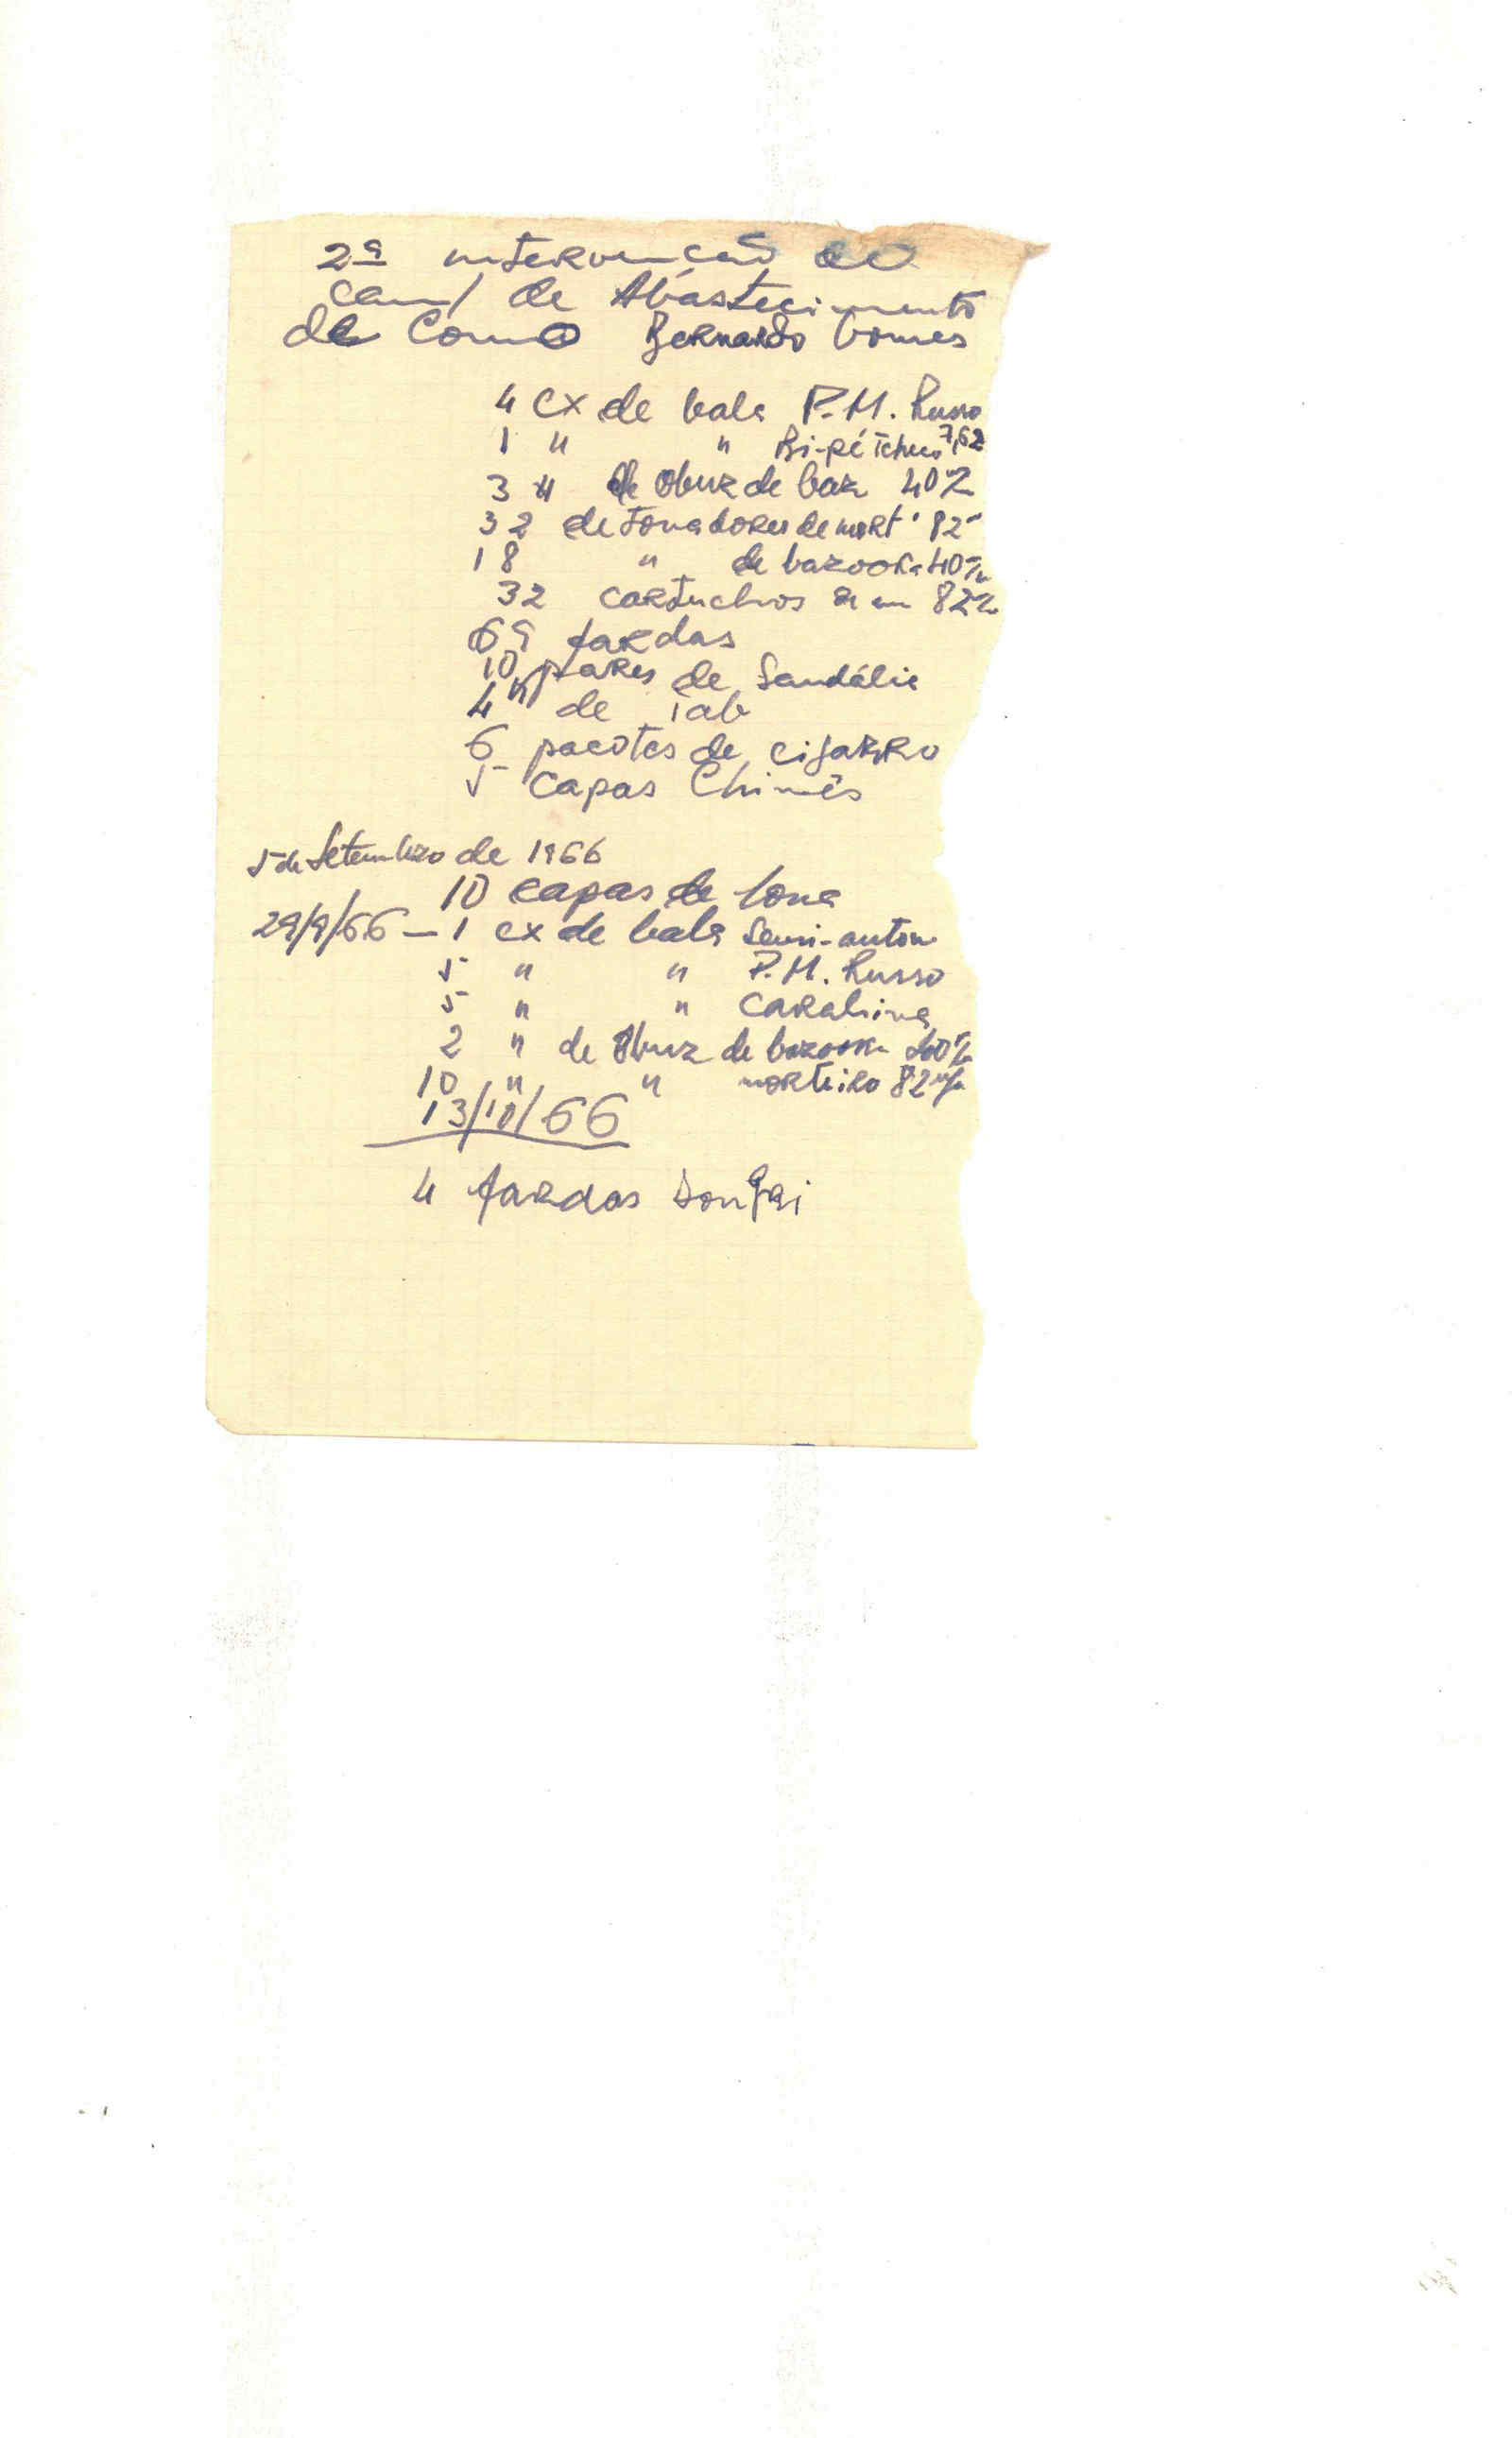 2ª intervenção ao
cam/ de Abastecimento
de Como Bernardo Gomes
4 cx de bala P.M. Russo
1 " " Bi-pé Tcheco 7,62
3 " de obuz de baz 40
32 detonadores de mort. 82
18 " de bazooka 40
32 cartuchos 82
69 fardas
10 pares de Sandália
4 K de Tab
6 pacotes de cigarro
5 capas Chinês
5 de Setembro de 1966
10 capas de lona
29/9/66 – 1 cx de bala Semi-autom
5 " " P.M. Russo
5 " " Carabina
2 " de Obuz de bazooka
10 " " morteiro 82 m/m
13/10/66
4 fardas